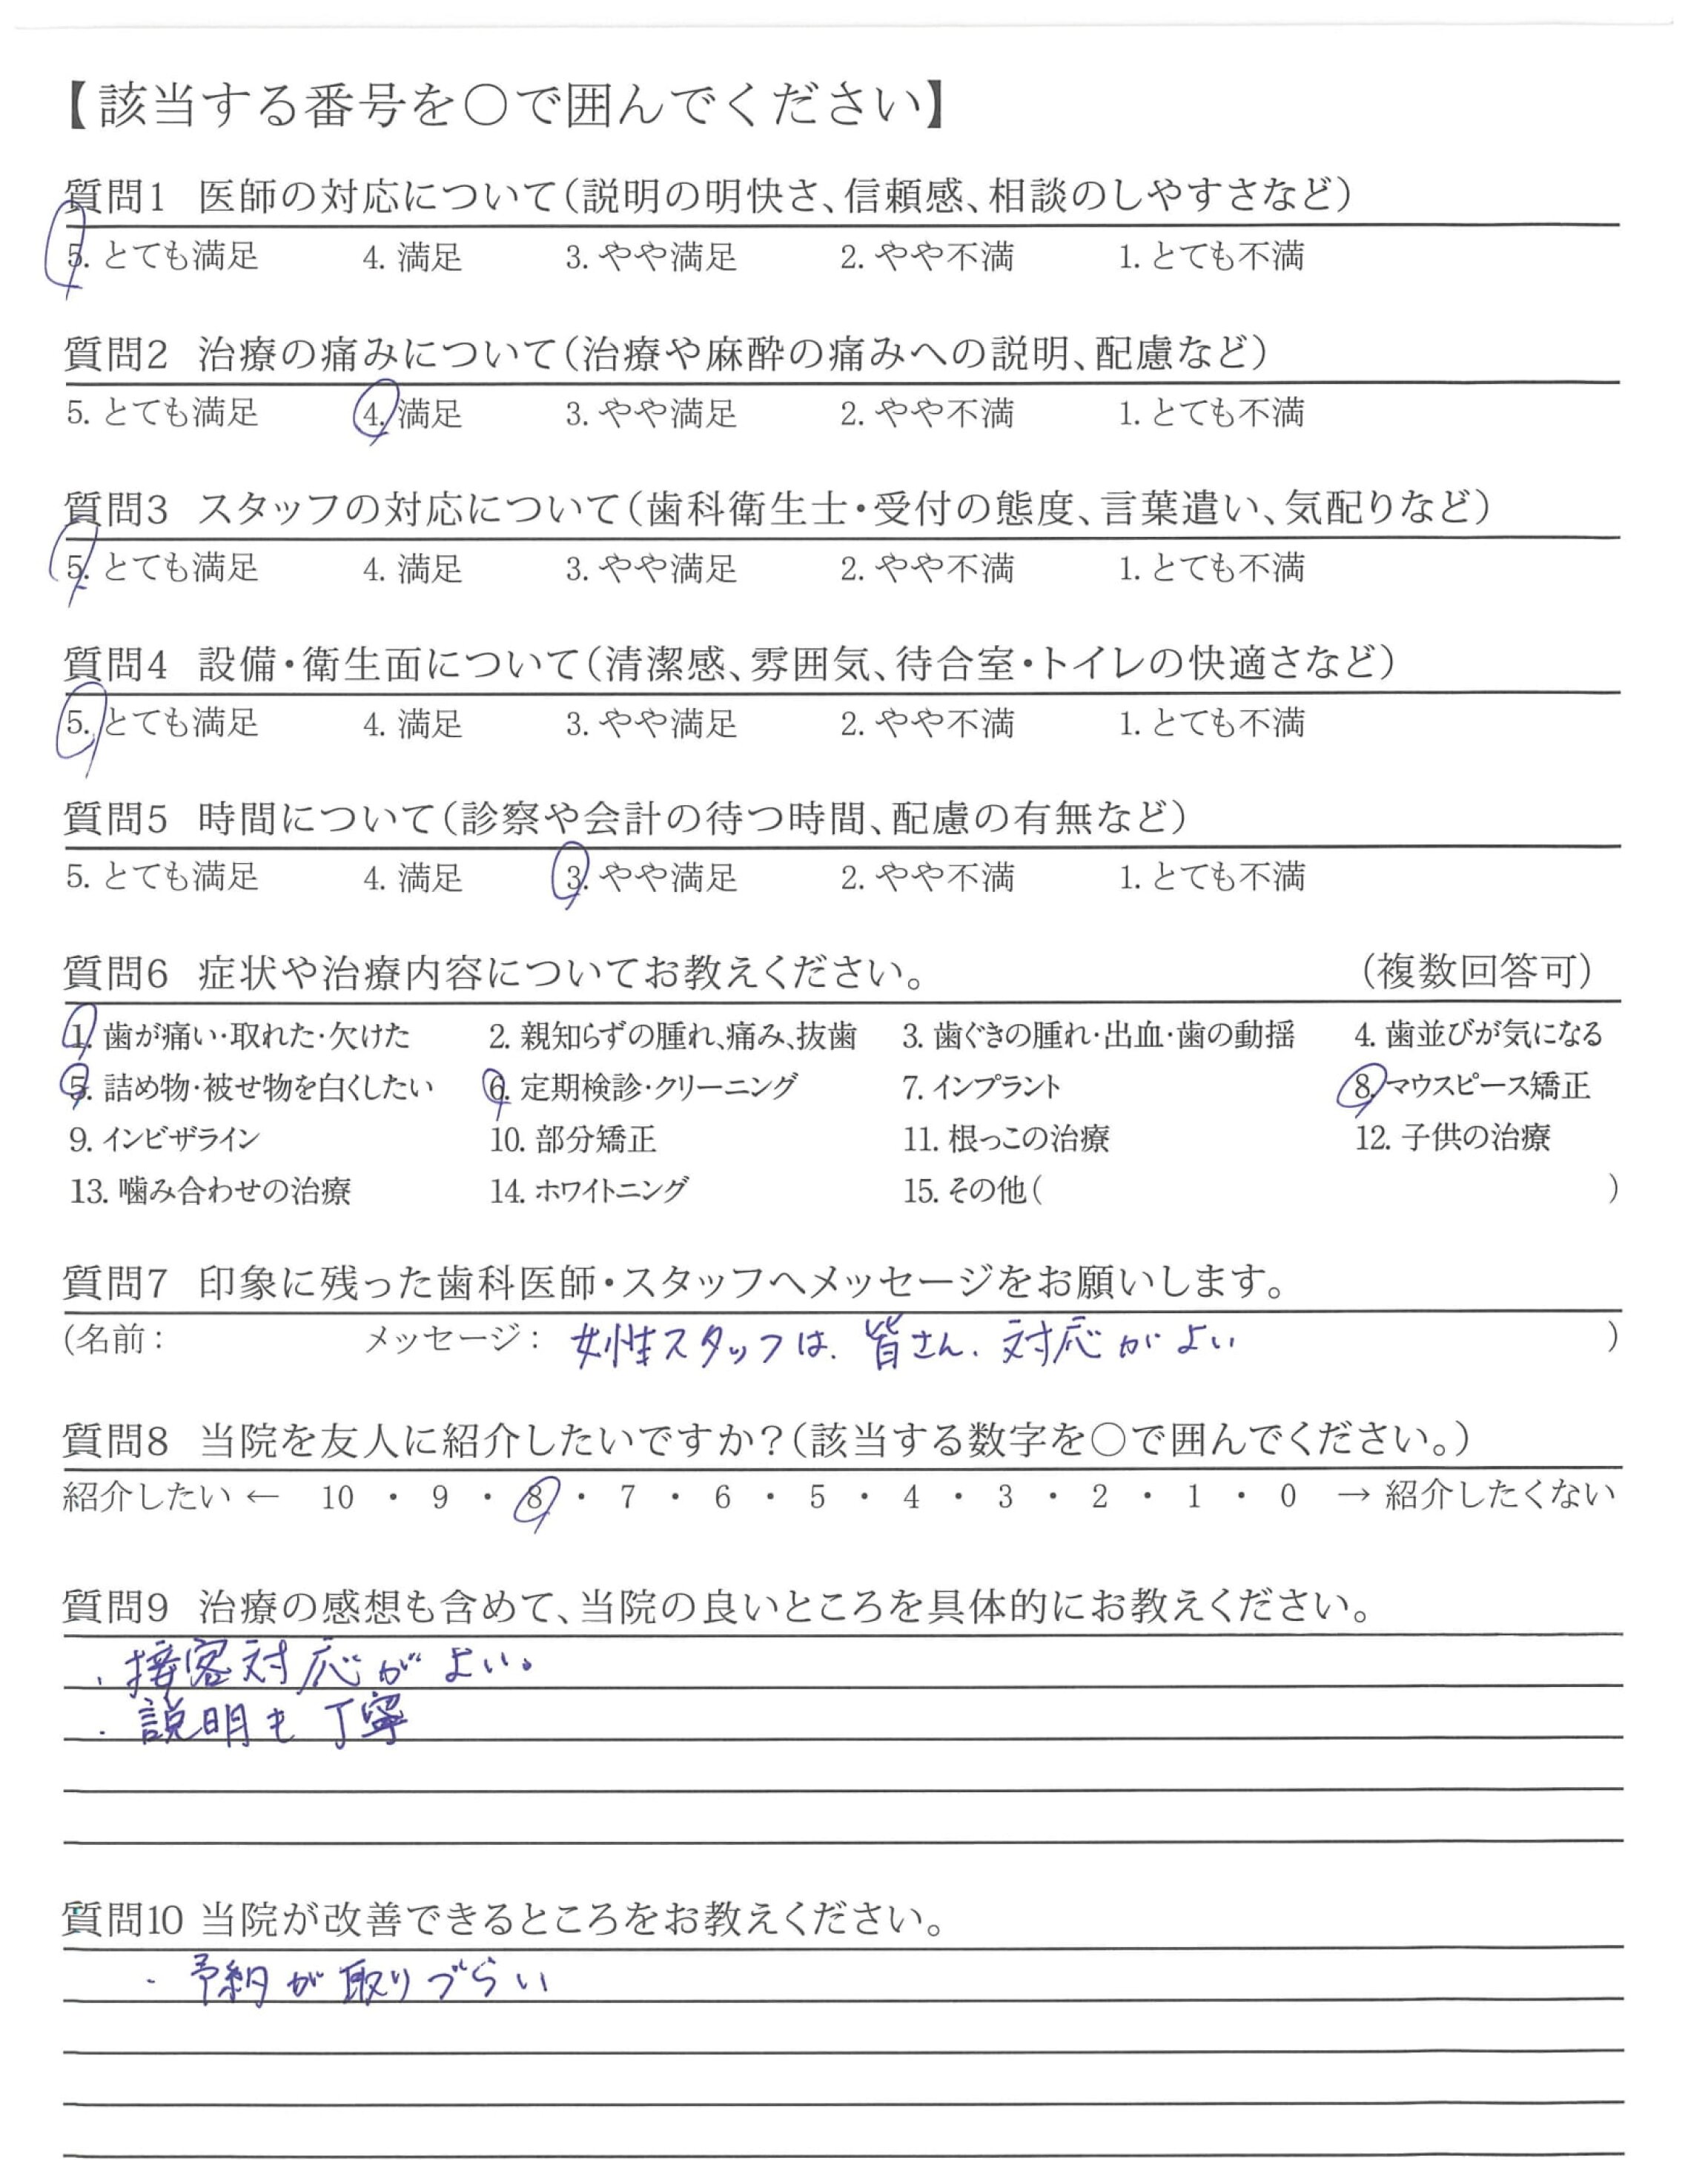 【該当する番号を〇で囲んでください】
質問1 医師の対応について(説明の明快さ、信頼感、相談のしやすさなど)
5. とても満足 4. 満足 3. やや満足 2. やや不満 1. とても不満
質問2 治療の痛みについて(治療や麻酔の痛みへの説明、配慮など)
5. とても満足 4. 満足 3. やや満足 2. やや不満 1. とても不満
質問3 スタッフの対応について(歯科衛生士・受付の態度、言葉遣い、気配りなど)
5. とても満足 4. 満足 3. やや満足 2. やや不満 1. とても不満
質問4 設備・衛生面について(清潔感、雰囲気、待合室・トイレの快適さなど)
5. とても満足 4. 満足 3. やや満足 2. やや不満 1. とても不満
質問5 時間について(診察や会計の待つ時間、配慮の有無など)
5. とても満足 4. 満足 3. やや満足 2. やや不満 1. とても不満
質問6 症状や治療内容についてお教えください。 (複数回答可)
1. 歯が痛い・取れた・欠けた 2. 親知らずの腫れ、痛み、抜歯 3. 歯ぐきの腫れ・出血・歯の動揺 4. 歯並びが気になる
5. 詰め物・被せ物を白くしたい 6. 定期検診・クリーニング 7. インプラント 8. マウスピース矯正
9. インビザライン 10. 部分矯正 11. 根っこの治療 12. 子供の治療
13. 噛み合わせの治療 14. ホワイトニング 15. その他( )
質問7 印象に残った歯科医師・スタッフへメッセージをお願いします。
(名前: メッセージ: 女性スタッフは、皆さん、対応がよい )
質問8 当院を友人に紹介したいですか?(該当する数字を〇で囲んでください。)
紹介したい ← 10 ・ 9 ・ 8 ・ 7 ・ 6 ・ 5 ・ 4 ・ 3 ・ 2 ・ 1 ・ 0 → 紹介したくない
質問9 治療の感想も含めて、当院の良いところを具体的にお教えください。
・接客対応がよい。
・説明も丁寧
質問10 当院が改善できるところをお教えください。
・予約が取りづらい